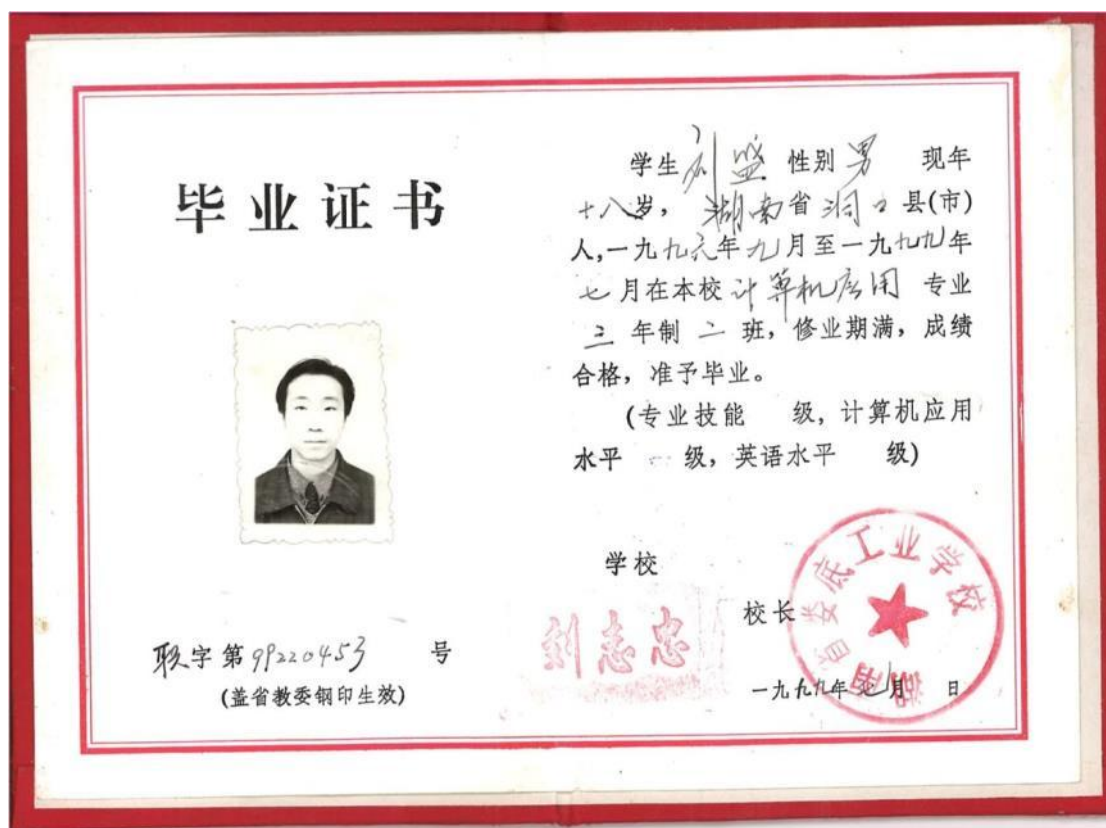 毕业证书
联字第99220453 号
(盖省教委钢印生效)
学生 刘盛 性别 男 现年
十八岁, 湖南省洞口县(市)
人,一九九六年九月至一九九九年
七月在本校计算机应用 专业
三年制 二 班, 修业期满, 成绩
合格, 准予毕业。
(专业技能 级, 计算机应用
水平 级, 英语水平 级)
学校
校长
刘志忠
湖南省娄底工业学校
一九九九年七月 日